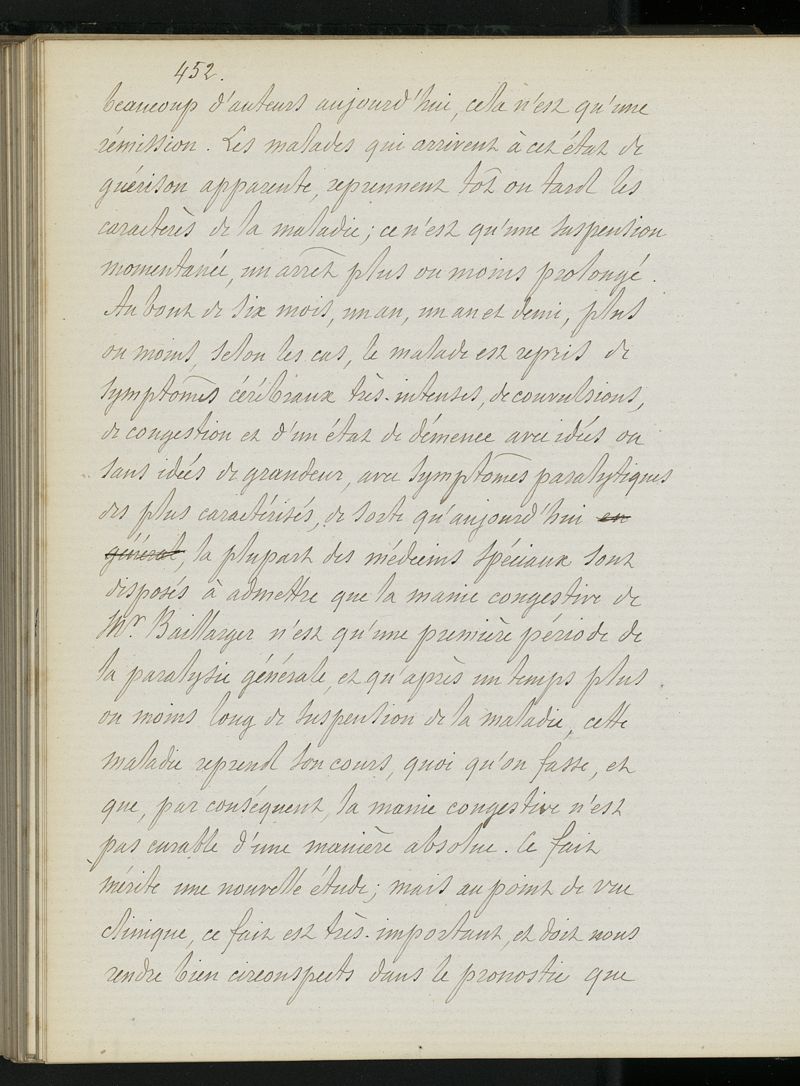 452.
beaucoup d'auteurs aujourd'hui, cela n'est qu'une
rémission. Les malades qui arrivent à cet état de
guérison apparente, reprennent tôt ou tard les
caractères de la maladie; ce n'est qu'une suspension
momentanée, un arrêt plus ou moins prolongé.
Au bout de six mois, un an, un an et demi, plus
ou moins, selon les cas, le malade est repris de
symptômes cérébraux très-intenses, de convulsions,
de congestion et d'un état de démence avec idées ou
sans idées de grandeur, avec symptômes paralytiques
des plus caractérisés, de sorte qu'aujourd'hui en
général, la plupart des médecins spéciaux sont
disposés à admettre que la manie congestive de
Mr. Baillarger n'est qu'une première période de
la paralysie générale, et qu'après un temps plus
ou moins long de suspension de la maladie, cette
maladie reprend son cours, quoi qu'on fasse, et
que, par conséquent, la manie congestive n'est
pas curable d'une manière absolue. Ce fait
mérite une nouvelle étude; mais au point de vue
clinique, ce fait est très-important, et doit nous
rendre bien circonspects dans le pronostic que